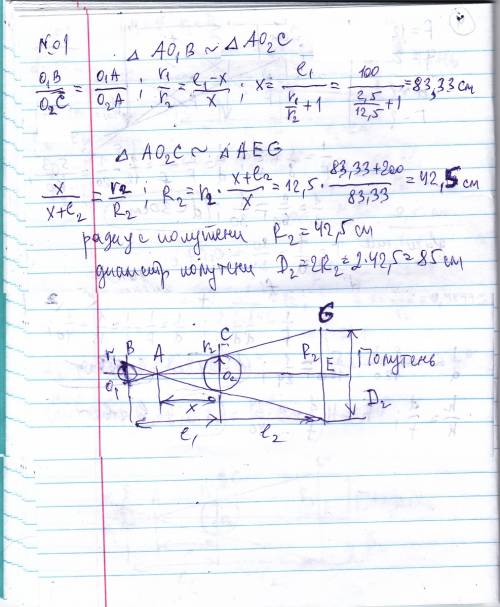 №01
Δ AO₁B ~ Δ AO₂C
O₁B/O₂C = O₁A/O₂A ; r₁/r₂ = (l₁-x)/x ; x = l₁/(r₁/r₂+1) = 100/(2,5/12,5+1) = 83,33 см
Δ AO₂C ~ Δ AEG
x/(x+l₂) = r₂/R₂ ; R₂ = r₂ · (x+l₂)/x = 12,5 · (83,33+200)/83,33 = 42,5 см
радиус полутени R₂ = 42,5 см
диаметр полутени D₂ = 2R₂ = 2·42,5 = 85 см
G
r₁ B A r₂ C R₂ Полутень
O₁ O₂ E
x D₂
l₁ l₂